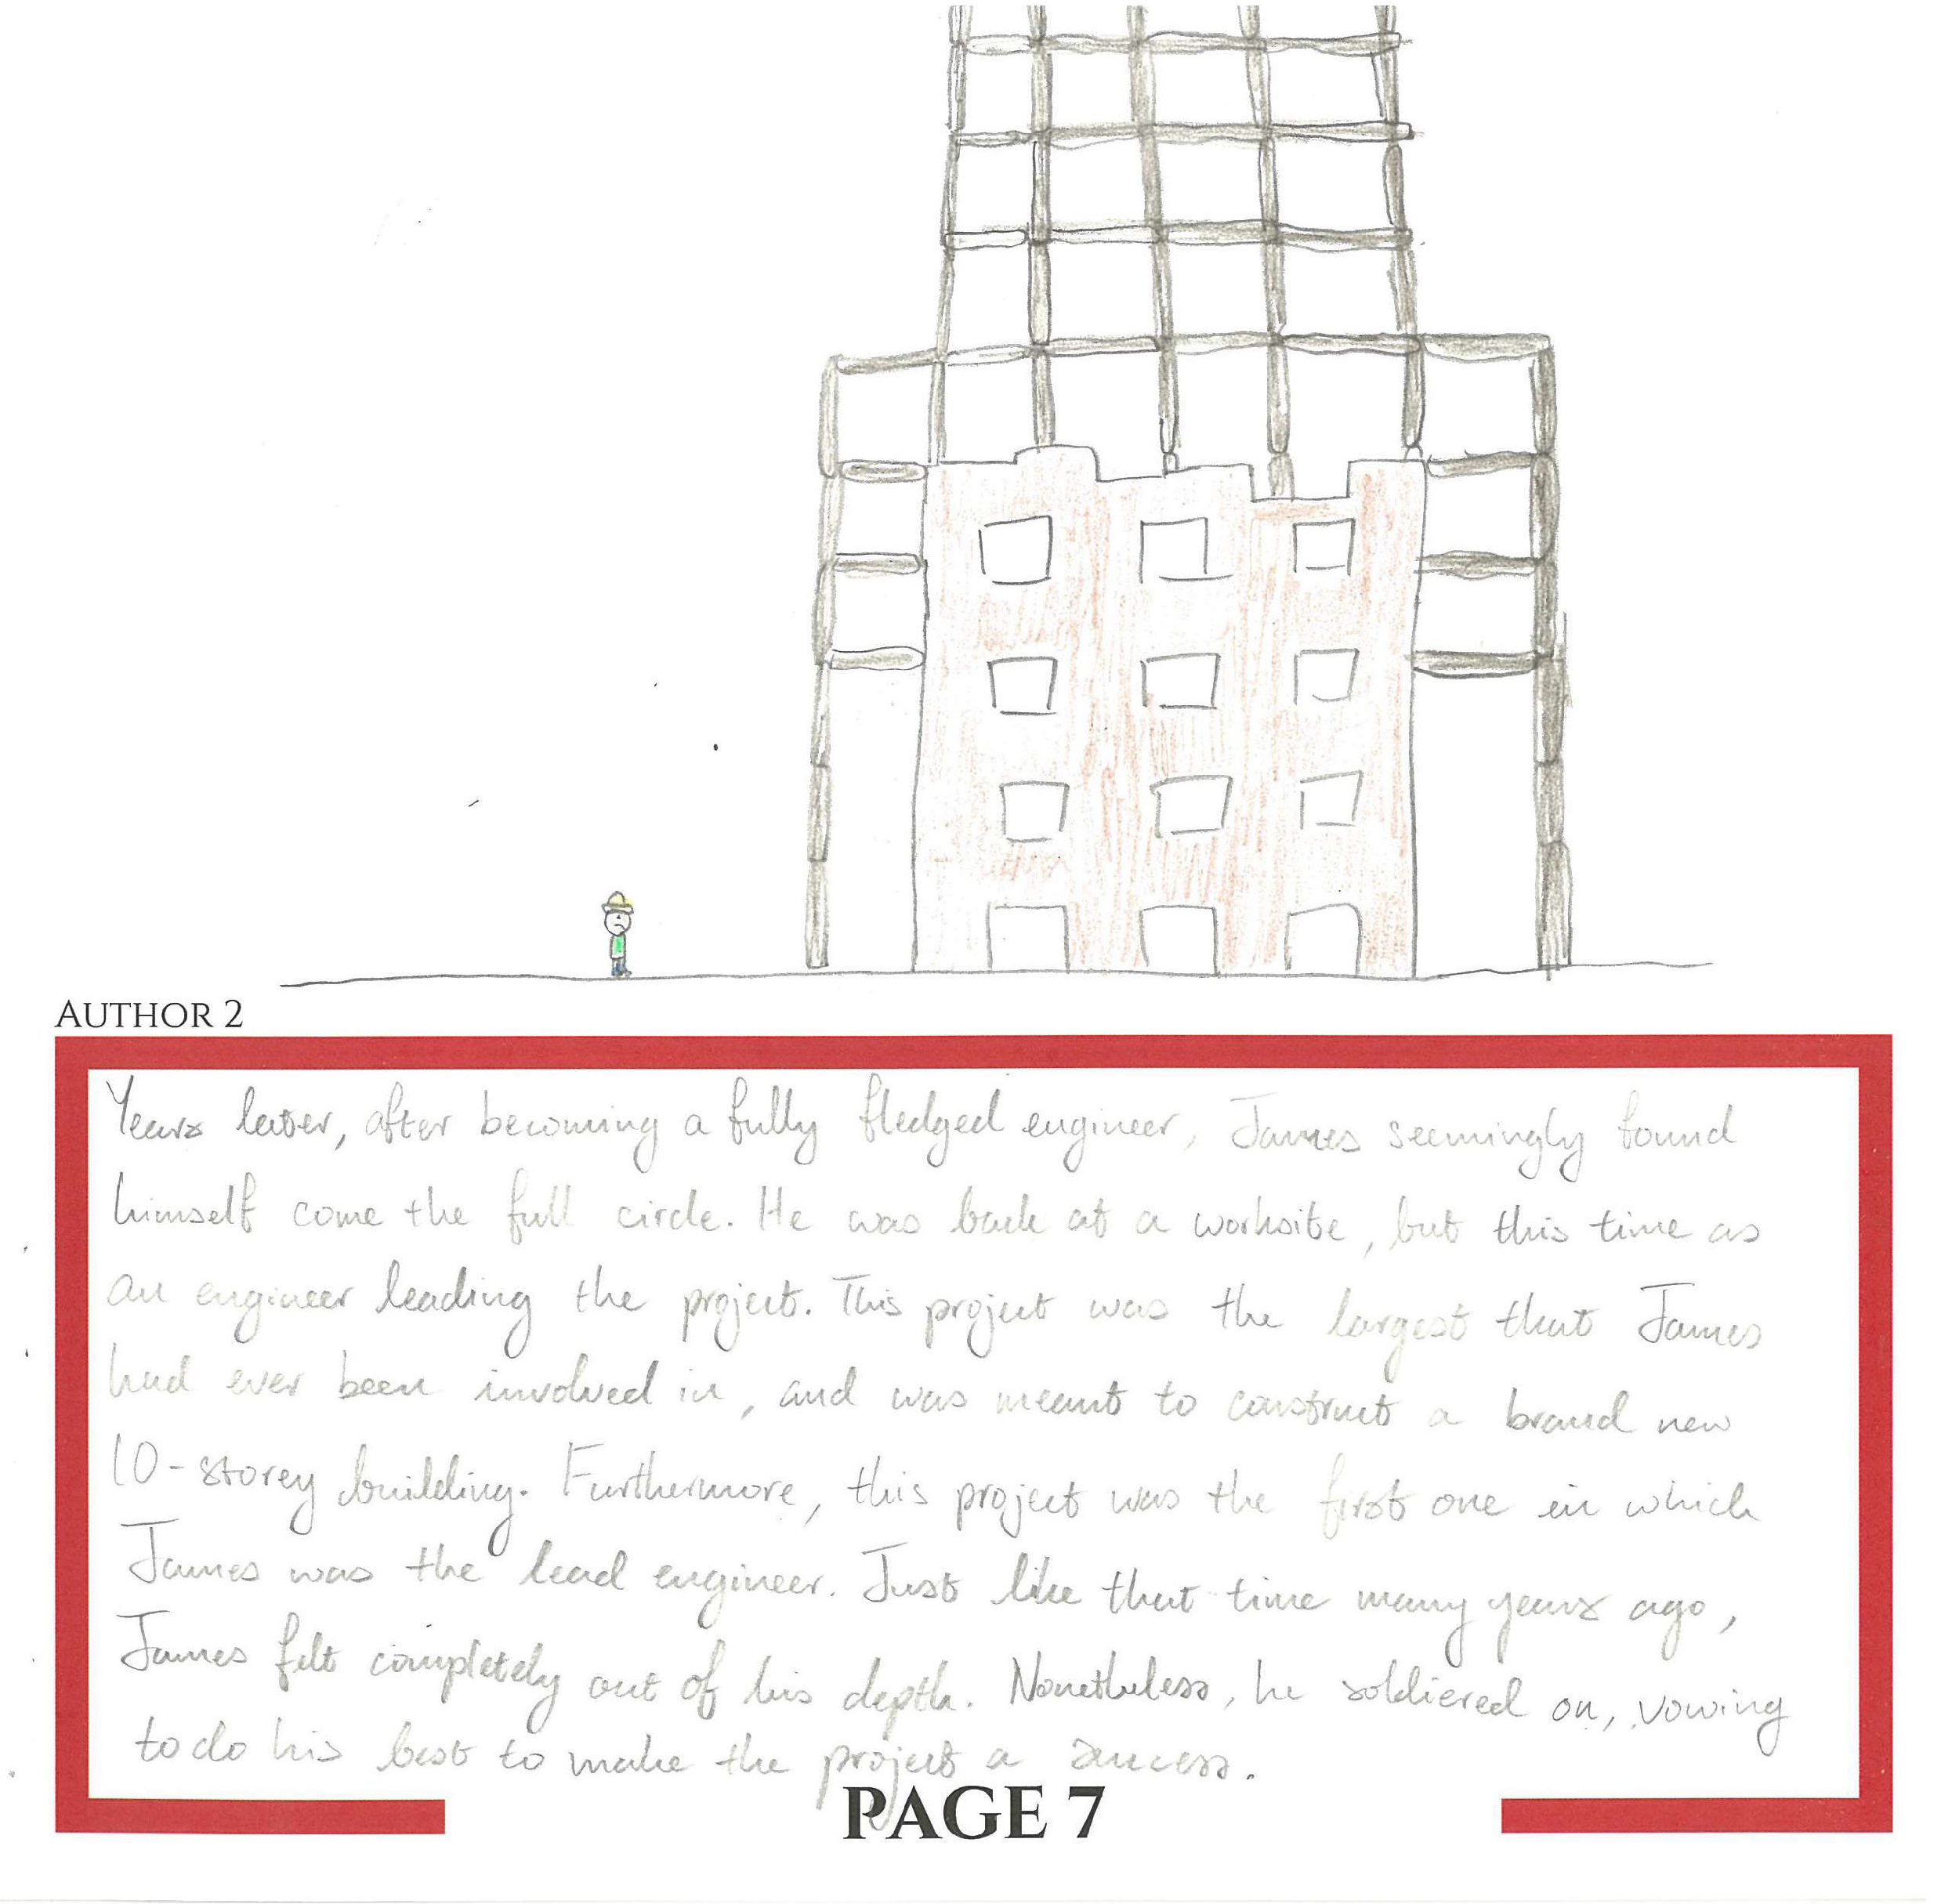 AUTHOR 2
Years later, after becoming a fully fledged engineer, James seemingly found
himself come the full circle. He was back at a worksite, but this time as
an engineer leading the project. This project was the largest that James
had ever been involved in, and was meant to construct a brand new
10-storey building. Furthermore, this project was the first one in which
James was the lead engineer. Just like that time many years ago,
James felt completely out of his depth. Nonetheless, he soldiered on, vowing
to do his best to make the project a success.
PAGE 7